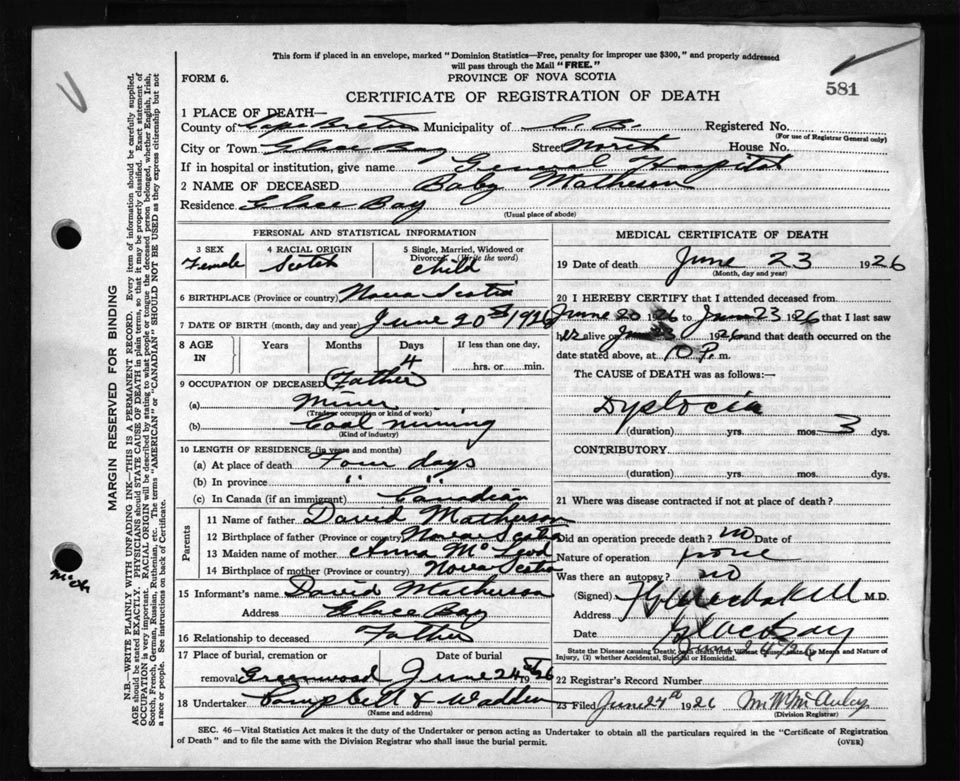 This form if placed in an envelope, marked "Dominion Statistics—Free, penalty for improper use $300," and properly addressed
will pass through the Mail "FREE."
FORM 6. PROVINCE OF NOVA SCOTIA
CERTIFICATE OF REGISTRATION OF DEATH 581
1 PLACE OF DEATH—
County of Cape Breton Municipality of C. B. Registered No.
(For use of Registrar General only)
City or Town Glace Bay Street North House No.
If in hospital or institution, give name General Hospital
2 NAME OF DECEASED Baby Matheson
Residence Glace Bay
(Usual place of abode)
PERSONAL AND STATISTICAL INFORMATION
3 SEX 4 RACIAL ORIGIN 5 Single, Married, Widowed or
Divorced (Write the word)
Female Scotch child
6 BIRTHPLACE (Province or country) Nova Scotia
7 DATE OF BIRTH (month, day and year) June 20th 1926
8 AGE IN Years Months Days If less than one day,
4 hrs. or min.
9 OCCUPATION OF DECEASED (Father)
(a) Miner
(Trade or occupation or kind of work)
(b) Coal mining
(Kind of industry)
10 LENGTH OF RESIDENCE (in years and months)
(a) At place of death Four days
(b) In province " "
(c) In Canada (if an immigrant) Canadian
Parents
11 Name of father David Matheson
12 Birthplace of father (Province or country) Nova Scotia
13 Maiden name of mother Anna McLeod
14 Birthplace of mother (Province or country) Nova Scotia
15 Informant's name David Matheson
Address Glace Bay
16 Relationship to deceased Father
17 Place of burial, cremation or Date of burial
removal Greenwood June 24th 1926
18 Undertaker Campbell & Wadden
(Name and address)
MEDICAL CERTIFICATE OF DEATH
19 Date of death June 23 1926
(Month, day and year)
20 I HEREBY CERTIFY that I attended deceased from
June 20 1926 to June 23 1926 that I last saw
her alive on June 1926 and that death occurred on the
date stated above, at 10 P. m.
The CAUSE OF DEATH was as follows:—
Dystocia
(duration) yrs. mos. 3 dys.
CONTRIBUTORY
(duration) yrs. mos. dys.
21 Where was disease contracted if not at place of death?
Did an operation precede death? no Date of
Nature of operation none
Was there an autopsy? no
(Signed) M.D.
Address Glace Bay
Date
State the Disease causing Death; or in death from Violent Causes, state (1) Means and Nature of
Injury, (2) whether Accidental, Suicidal or Homicidal.
22 Registrar's Record Number
23 Files June 24th 1926 M W McAuley
(Division Registrar)
SEC. 46—Vital Statistics Act makes it the duty of the Undertaker or person acting as Undertaker to obtain all the particulars required in the "Certificate of Registration
of Death" and to file the same with the Division Registrar who shall issue the burial permit. (OVER)
MARGIN RESERVED FOR BINDING
N.B.—WRITE PLAINLY WITH UNFADING INK—THIS IS A PERMANENT RECORD. Every item of information should be carefully supplied.
AGE should be stated EXACTLY. PHYSICIANS should STATE CAUSE OF DEATH in plain terms, so that it may be properly classified. Exact statement of
OCCUPATION is very important. RACIAL ORIGIN will be described by stating to what people or tongue the deceased person belonged, whether English, Irish,
Scotch, French, German, Russian, Ruthenian, etc. The terms "AMERICAN" or "CANADIAN" SHOULD NOT BE USED as they express citizenship but not
a race or people. See instructions on back of Certificate.